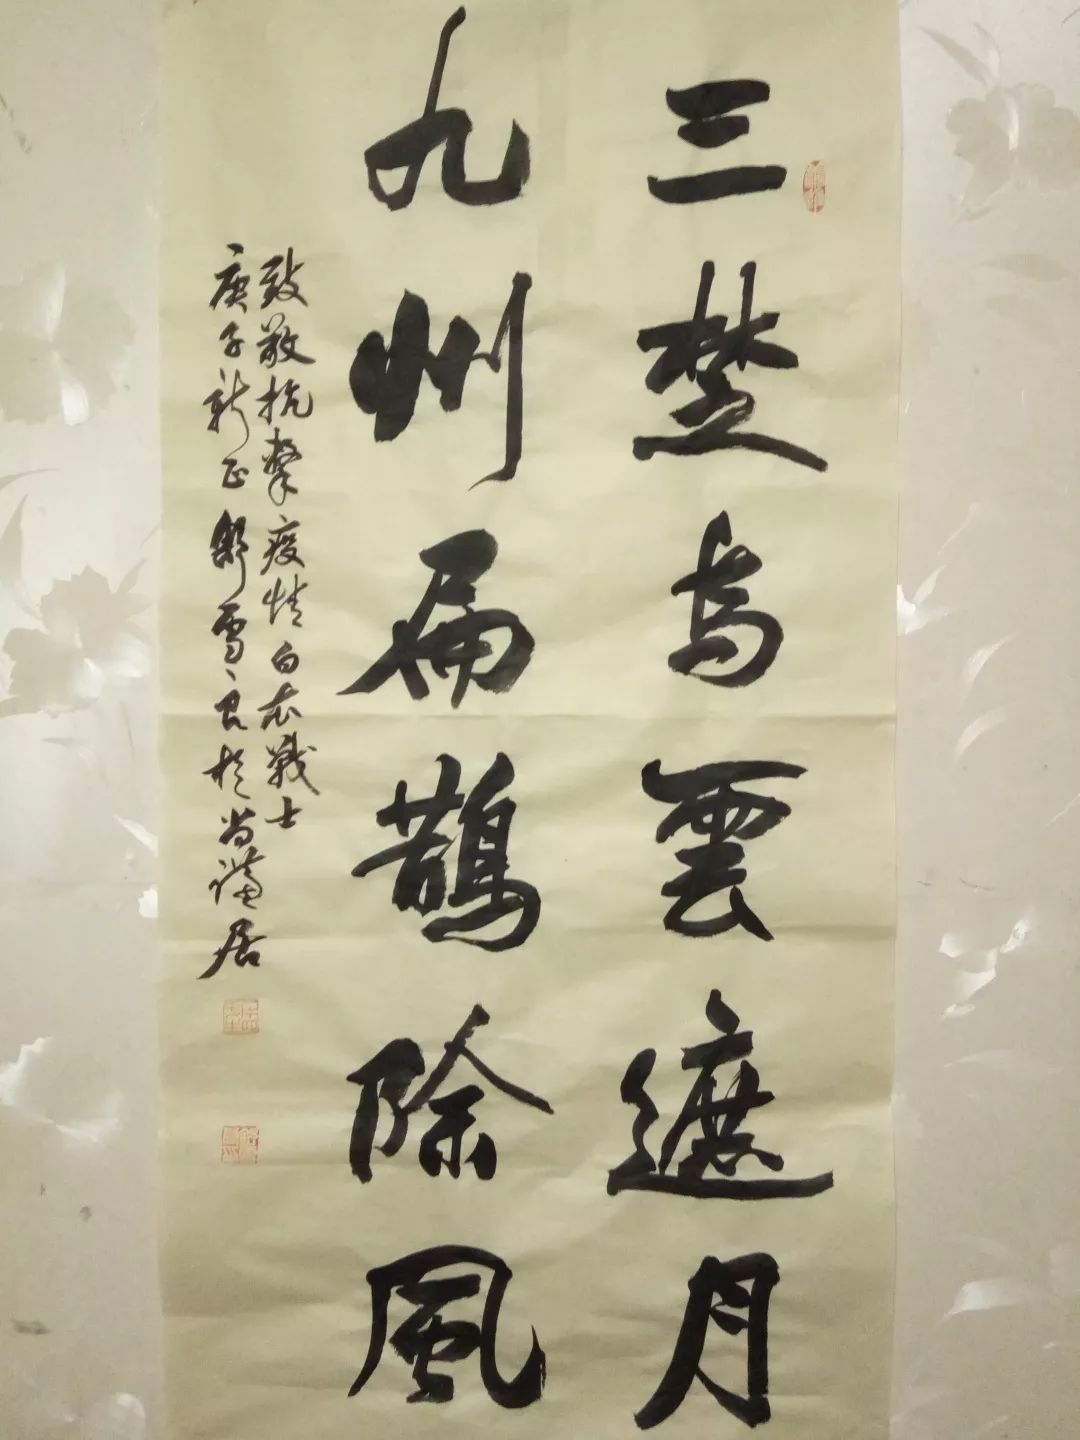 三楚乌雲遮月
九州扁鵲除風
致敬抗擊疫情白衣戰士
庚子新正鄒雪君於尚謙居